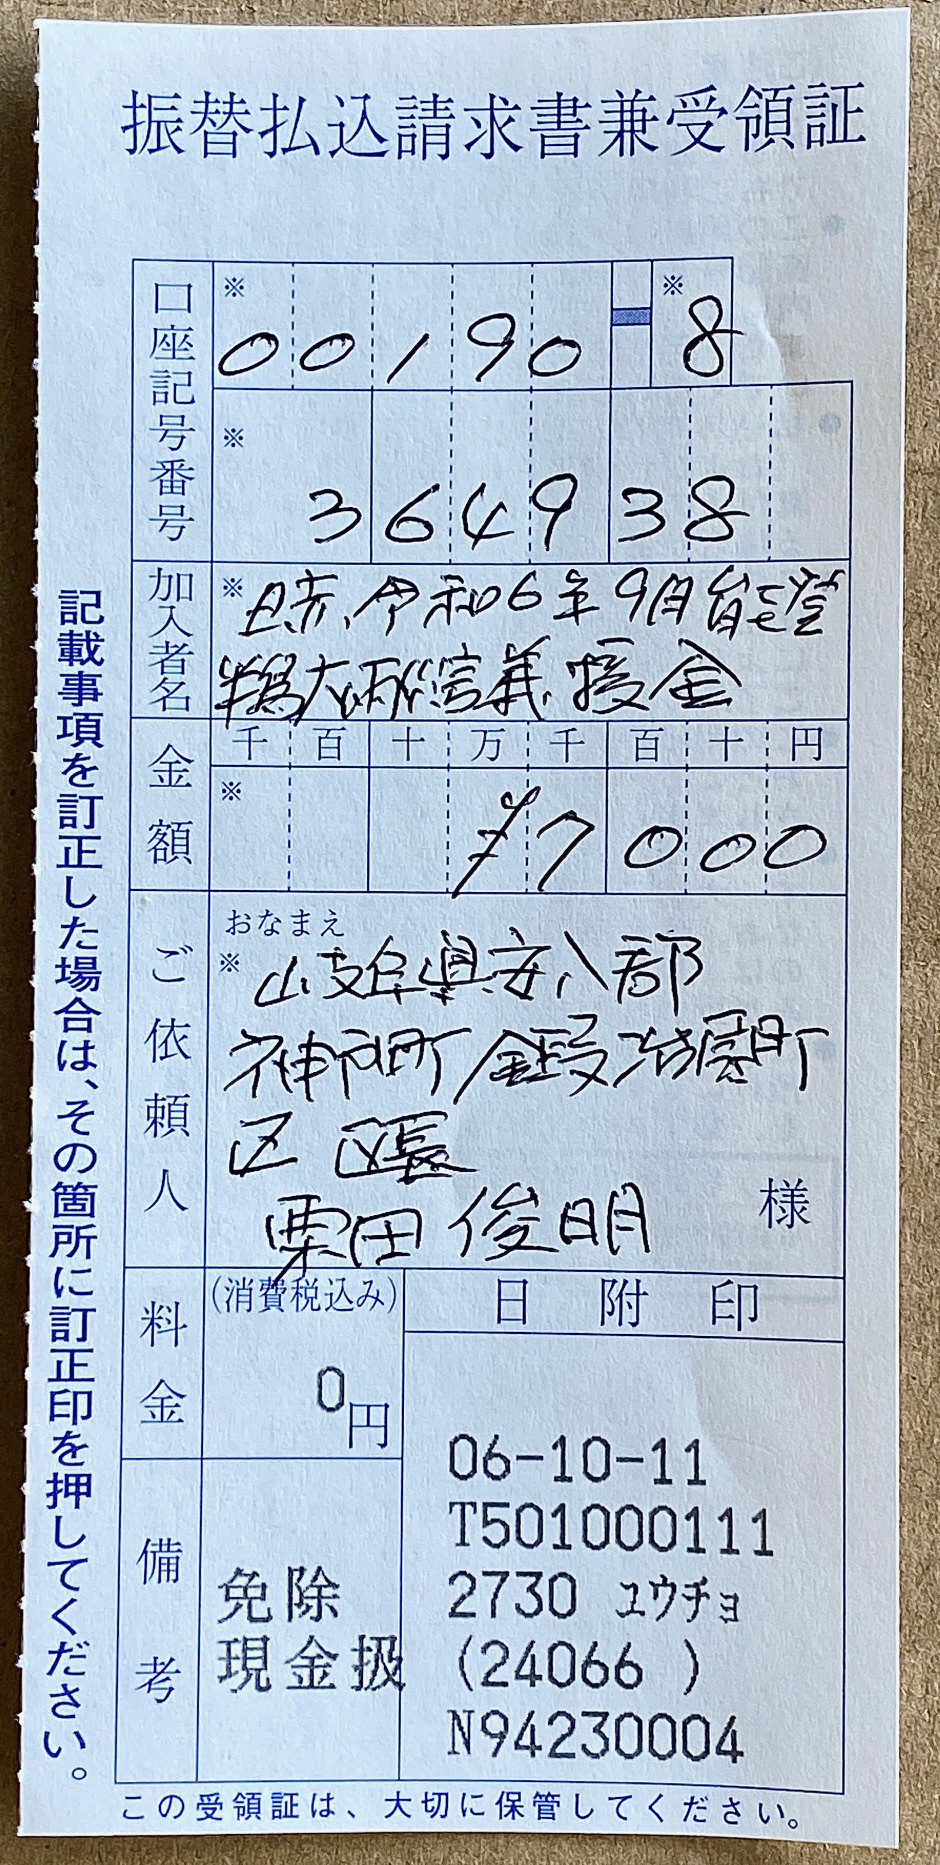 振替払込請求書兼受領証
口座記号番号
※ ※
00190-8
※
364938
加入者名
※ 日赤令和6年9月能登
半島大雨災害義援金
金額
千百十万千百十円
※
¥7000
ご依頼人
おなまえ
※ 岐阜県安八郡
神戸町鍛治屋町
区 区長
栗田俊明
様
料金
(消費税込み)
0円
日附印
06-10-11
T501000111
2730 ユウチョ
(24066 )
N94230004
備考
免除
現金扱
記載事項を訂正した場合は、その箇所に訂正印を押してください。
この受領証は、大切に保管してください。